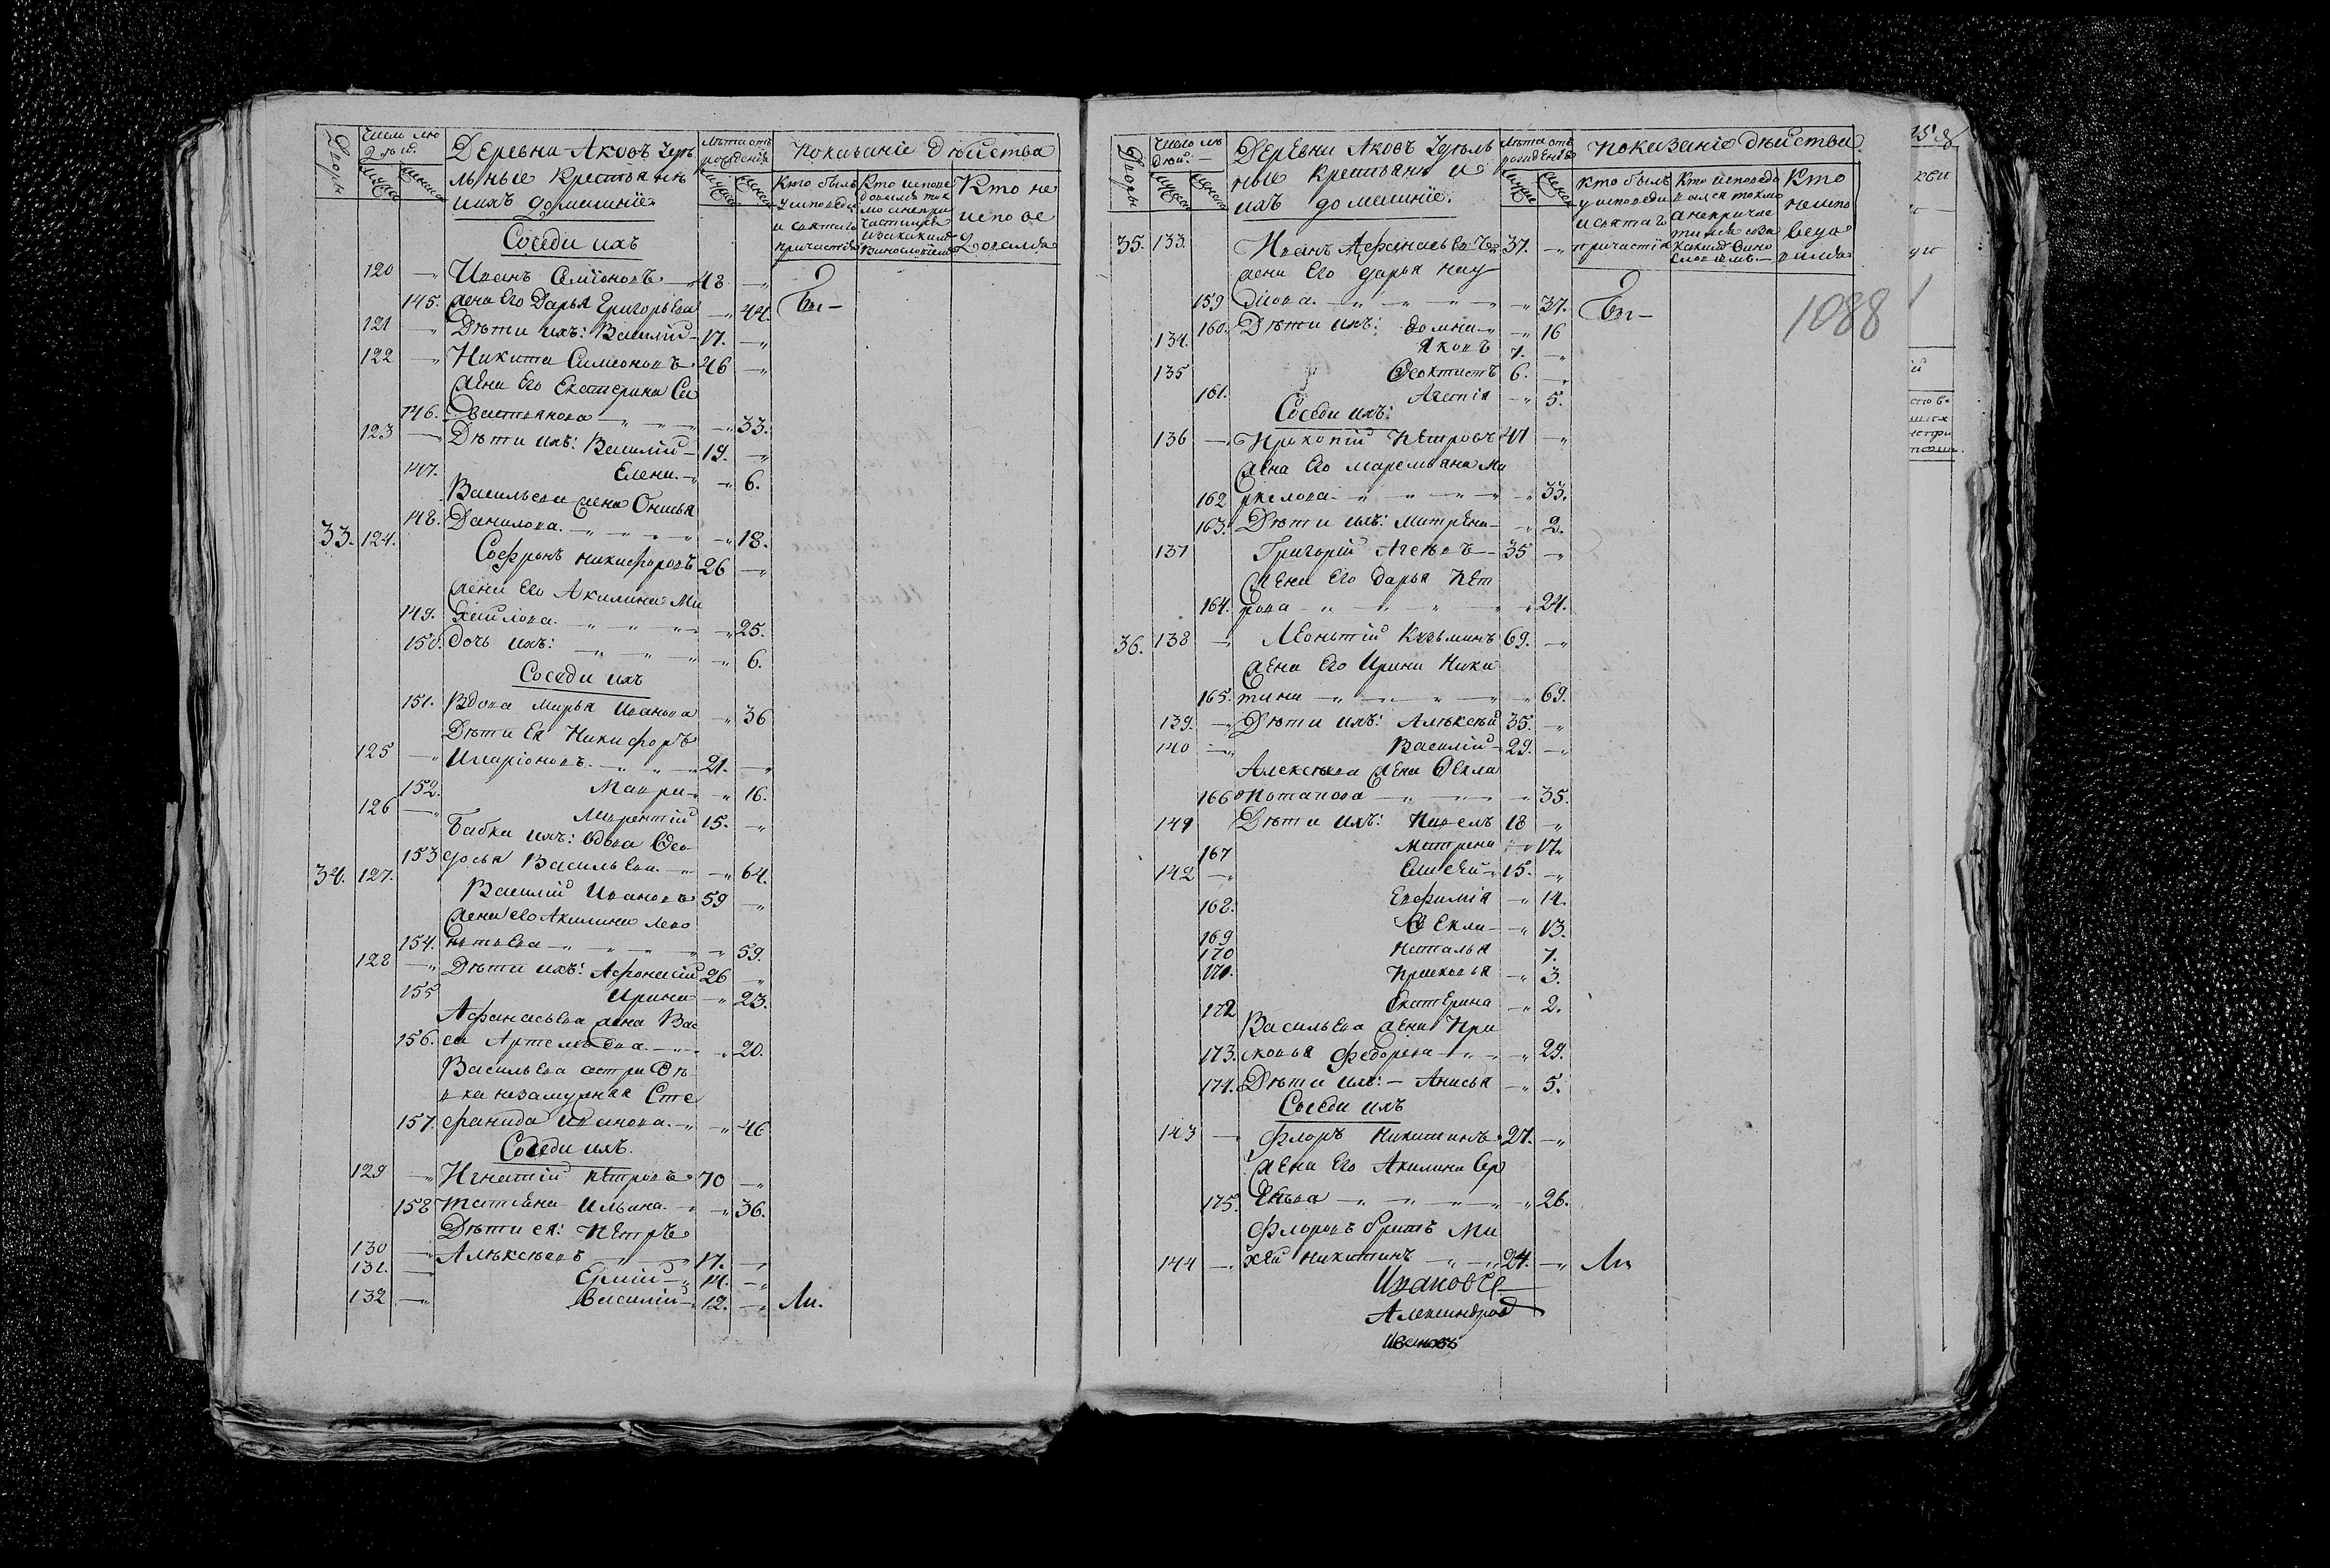 Дворы
Число лю
дей.
Деревни Аковъ Удѣ
льные крестьянъ
ихъ домашніе.
Лѣта отъ
рожденія
Показаніе дѣйства
Кто былъ
у исповеди
и святаго
причастія
Кто испове
довался ток
мо а непри
частился
Кто не
испове
довался
Соседи ихъ
120 Иванъ Семіоновъ 48
145. жена его Дарья Григорьева 44. Бы
121 Дѣти ихъ: Василій 17.
122 Никита Симеоновъ 46
жена его Екатерина Са
146. вастьянова 33.
123 Дѣти ихъ: Василій 19.
147. Елена 6.
Васильева жена Онисья
148. Данилова 18.
33. 124. Софронъ Никифоровъ 26
жена его Акилина Ми
149. хайлова 25.
150. дочь ихъ: 6.
Соседи ихъ
151. Вдова Марья Иванова 36
Дѣти ея Никифоръ
125 Иларіоновъ 21.
152. Мавра 16.
126 Лаврентій 15.
Бабка ихъ: вдова Ѳео
153 досья Васильева 64.
34. 127. Василій Ивановъ 59
жена его Акилина Лео
154. нтьева 59.
128 Дѣти ихъ: Афонасій 26
155 Ирина 23.
Афанасьева жена Вас
156. са Артемьева 20.
Васильева сестра дѣ
вка незамужняя Сте
157. фанида Иванова 46
Соседи ихъ.
129 Игнатій Петровъ 70
158 Татіяна Ильина 36.
Дѣти ея: Петръ
130 Алѣксѣевъ 17.
131. Ермій 14.
132 Василій 12. Ли.
Дворы
Число лю
дей.
Деревни Аковъ Удѣль
ные крестьянъ и
ихъ домашніе.
Лѣта отъ
рожденія
Показаніе дѣйства
Кто былъ
у исповеди
и святаго
причастія
Кто исповедо
вался токмо
а непричас
тился
Кто
неиспо
ведо
вался
35. 133. Иванъ Афанасьевъ 37.
жена его Дарья Нау
159 мова 37. Бы
1088
160. Дѣти ихъ: Домна 16
134. Яковъ 7.
135 Ѳеоктистъ 6.
161. Агапія 5.
Соседи ихъ:
136 Прокопій Петровъ 41
жена его Маремьяна Ма
162 ркелова 33.
163. Дѣти ихъ: Матрена 2.
137 Григорій Агеевъ 35
жена его Дарья Пет
164. рова 24.
36. 138 Леонтій Кузьминъ 69.
жена его Ирина Ники
165. тина 69.
139. Дѣти ихъ: Алѣксѣй 35.
140 Василій 29.
Алексѣева жена Ѳекла
166 Потапова 35.
141 Дѣти ихъ: Павелъ 18
167 Матрена 17.
142 Елисей 15.
168. Евфимія 14.
169 Ѳекла 13.
170 Наталья 7.
171. Прасковья 3.
172 Екатерина 2.
Васильева жена Пра
173. сковья Федорова 29.
174. Дѣти ихъ: Анисья 5.
Соседи ихъ
143 Флоръ Никитинъ 27.
жена его Акилина Ер
175. 26.
Флоровъ братъ Ми
144 хей Никитинъ 24. Ли
Александров